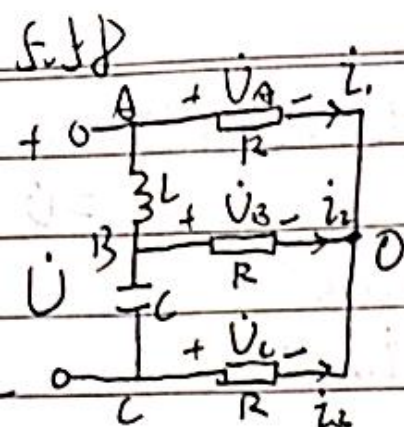 5.58
A + U̇A - i₁
+
R
L
B + U̇B - i₂
O
U̇
R
C
+ U̇C -
-
C R i₃